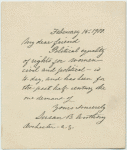 February 14-1900.
My dear friend
Political equality
of rights for women—
civil and political — is
to-day, and has been for
the past half century the
one demand of
Yours sincerely
Susan B. Anthony
Rochester - N.Y.